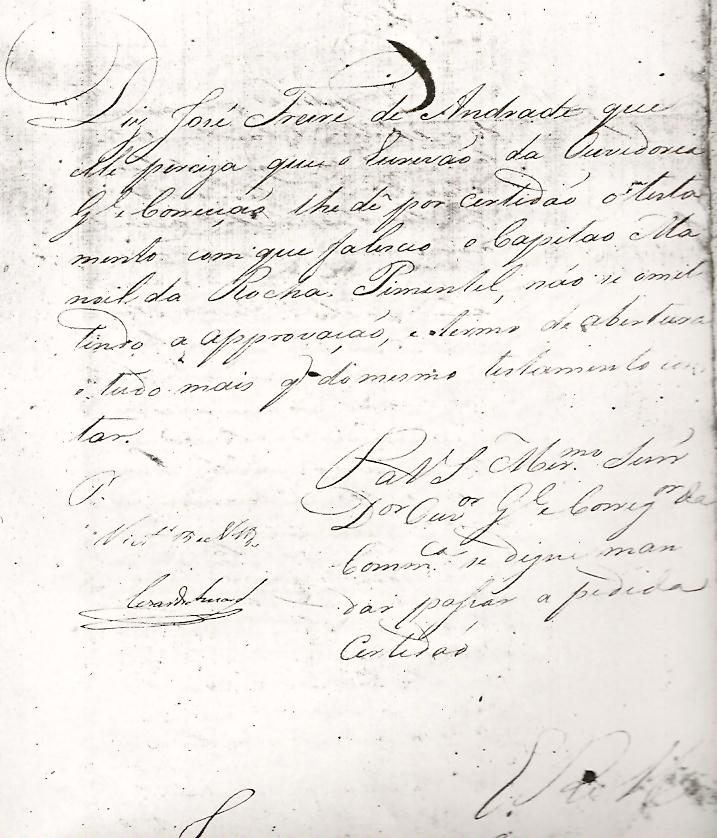 Diz José Freire de Andrade que
elle perciza que o Escrivão da Ouvidoria
G.l e Correição lhe dê por certidão o testa
mento com que faleceo o Capitão Ma
noel da Rocha Pimentel, não se omit
tindo a approvação, e termo de abertura
e tudo mais q' do mesmo testamento cons
tar.
P. a V. S. Mer.mo Senr
Dor Ouv.or G.l e Correg.or da
Comm.ca se digne man
dar passar a pedida
Certidão
P.
E. R. M.